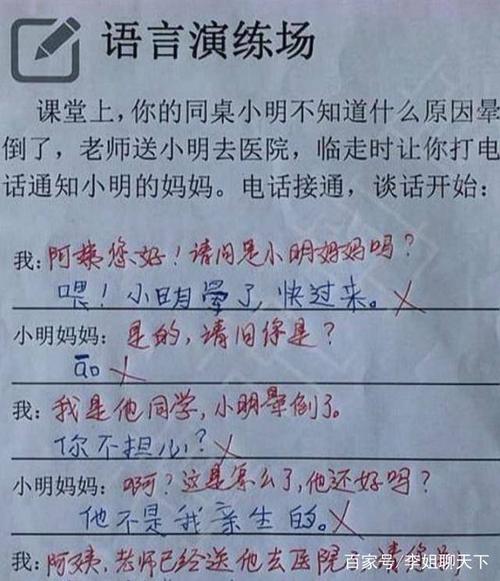 语言演练场
课堂上，你的同桌小明不知道什么原因晕
倒了，老师送小明去医院，临走时让你打电
话通知小明的妈妈。电话接通，谈话开始：
我：阿姨您好！请问是小明妈妈吗？
喂！小明晕了，快过来。
小明妈妈：是的，请问你是？
āo
我：我是他同学，小明晕倒了。
你不担心？
小明妈妈：啊？这是怎么了，他还好吗？
他不是我亲生的。
我：阿姨，老师已经送他去医院
百家号/李姐聊天下